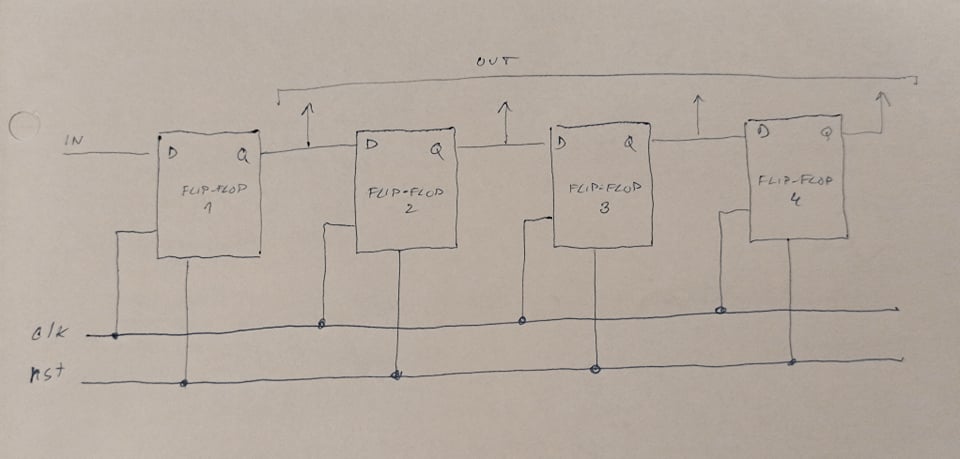 OUT
IN
D Q
FLIP-FLOP
1
D Q
FLIP-FLOP
2
D Q
FLIP-FLOP
3
D Q
FLIP-FLOP
4
clk
rst